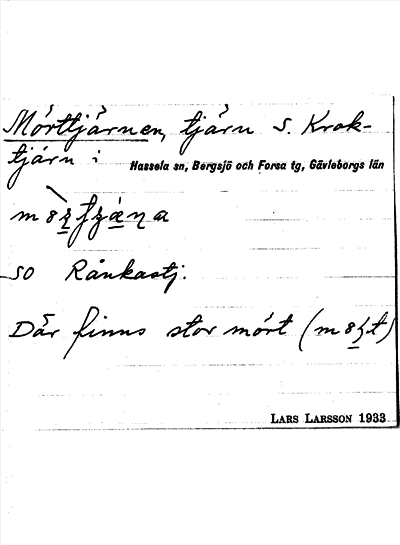 Mörttjärnen, tjärn S. Krok-
tjärn i Hassela sn, Bergsjö och Forsa tg, Gävleborgs län
SO Rånkastj.
Där finns stor mört
LARS LARSSON 1933